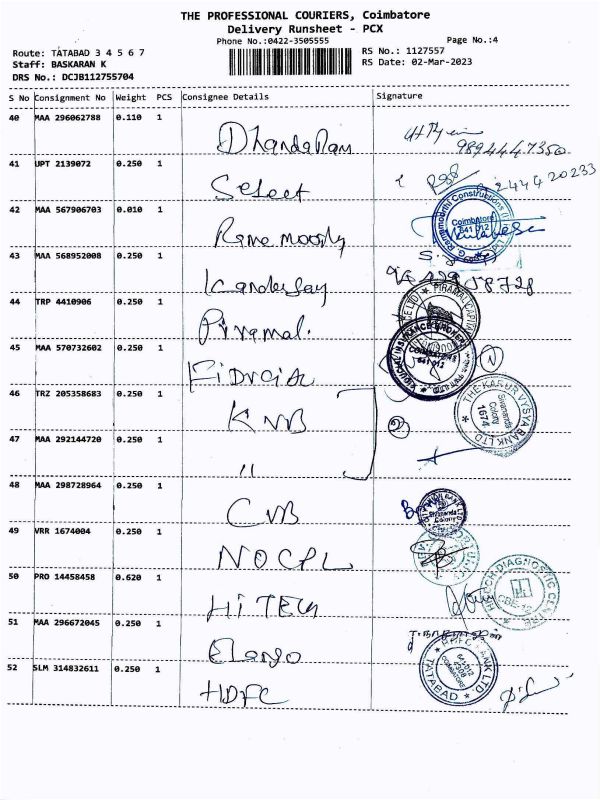 THE PROFESSIONAL COURIERS, Coimbatore
Delivery Runsheet - PCX
Phone No.:0422-3505555
Page No.:4
Route: TATABAD 3 4 5 6 7
RS No.: 1127557
Staff: BASKARAN K
RS Date: 02-Mar-2023
DRS No.: DCJB112755704
S No Consignment No Weight PCS Consignee Details Signature
40 MAA 296062788 0.110 1
9894447350
41 UPT 2139072 0.250 1
Select
42 MAA 567906703 0.010 1
Coimbatore
641 012
Rama moorthy
43 MAA 568952008 0.250 1
44 TRP 4410906 0.250 1
Piramal.
45 MAA 570732602 0.250 1
COIMBATORE
641 012
46 TRZ 205358683 0.250 1
KVB
THE KARUR VYSYA BANK LTD
Sivananda
Colony
1674
47 MAA 292144720 0.250 1
"
48 MAA 298728964 0.250 1
Sivananda
Colony
CVB
49 VRR 1674004 0.250 1
NOCPL
50 PRO 14458458 0.620 1
HI-TECH DIAGNOSTIC CENTRE
CBE-12
Hi TECH
51 MAA 296672045 0.250 1
Elango
52 SLM 314832611 0.250 1
HDFC BANK LTD.
TATABAD
HDFC